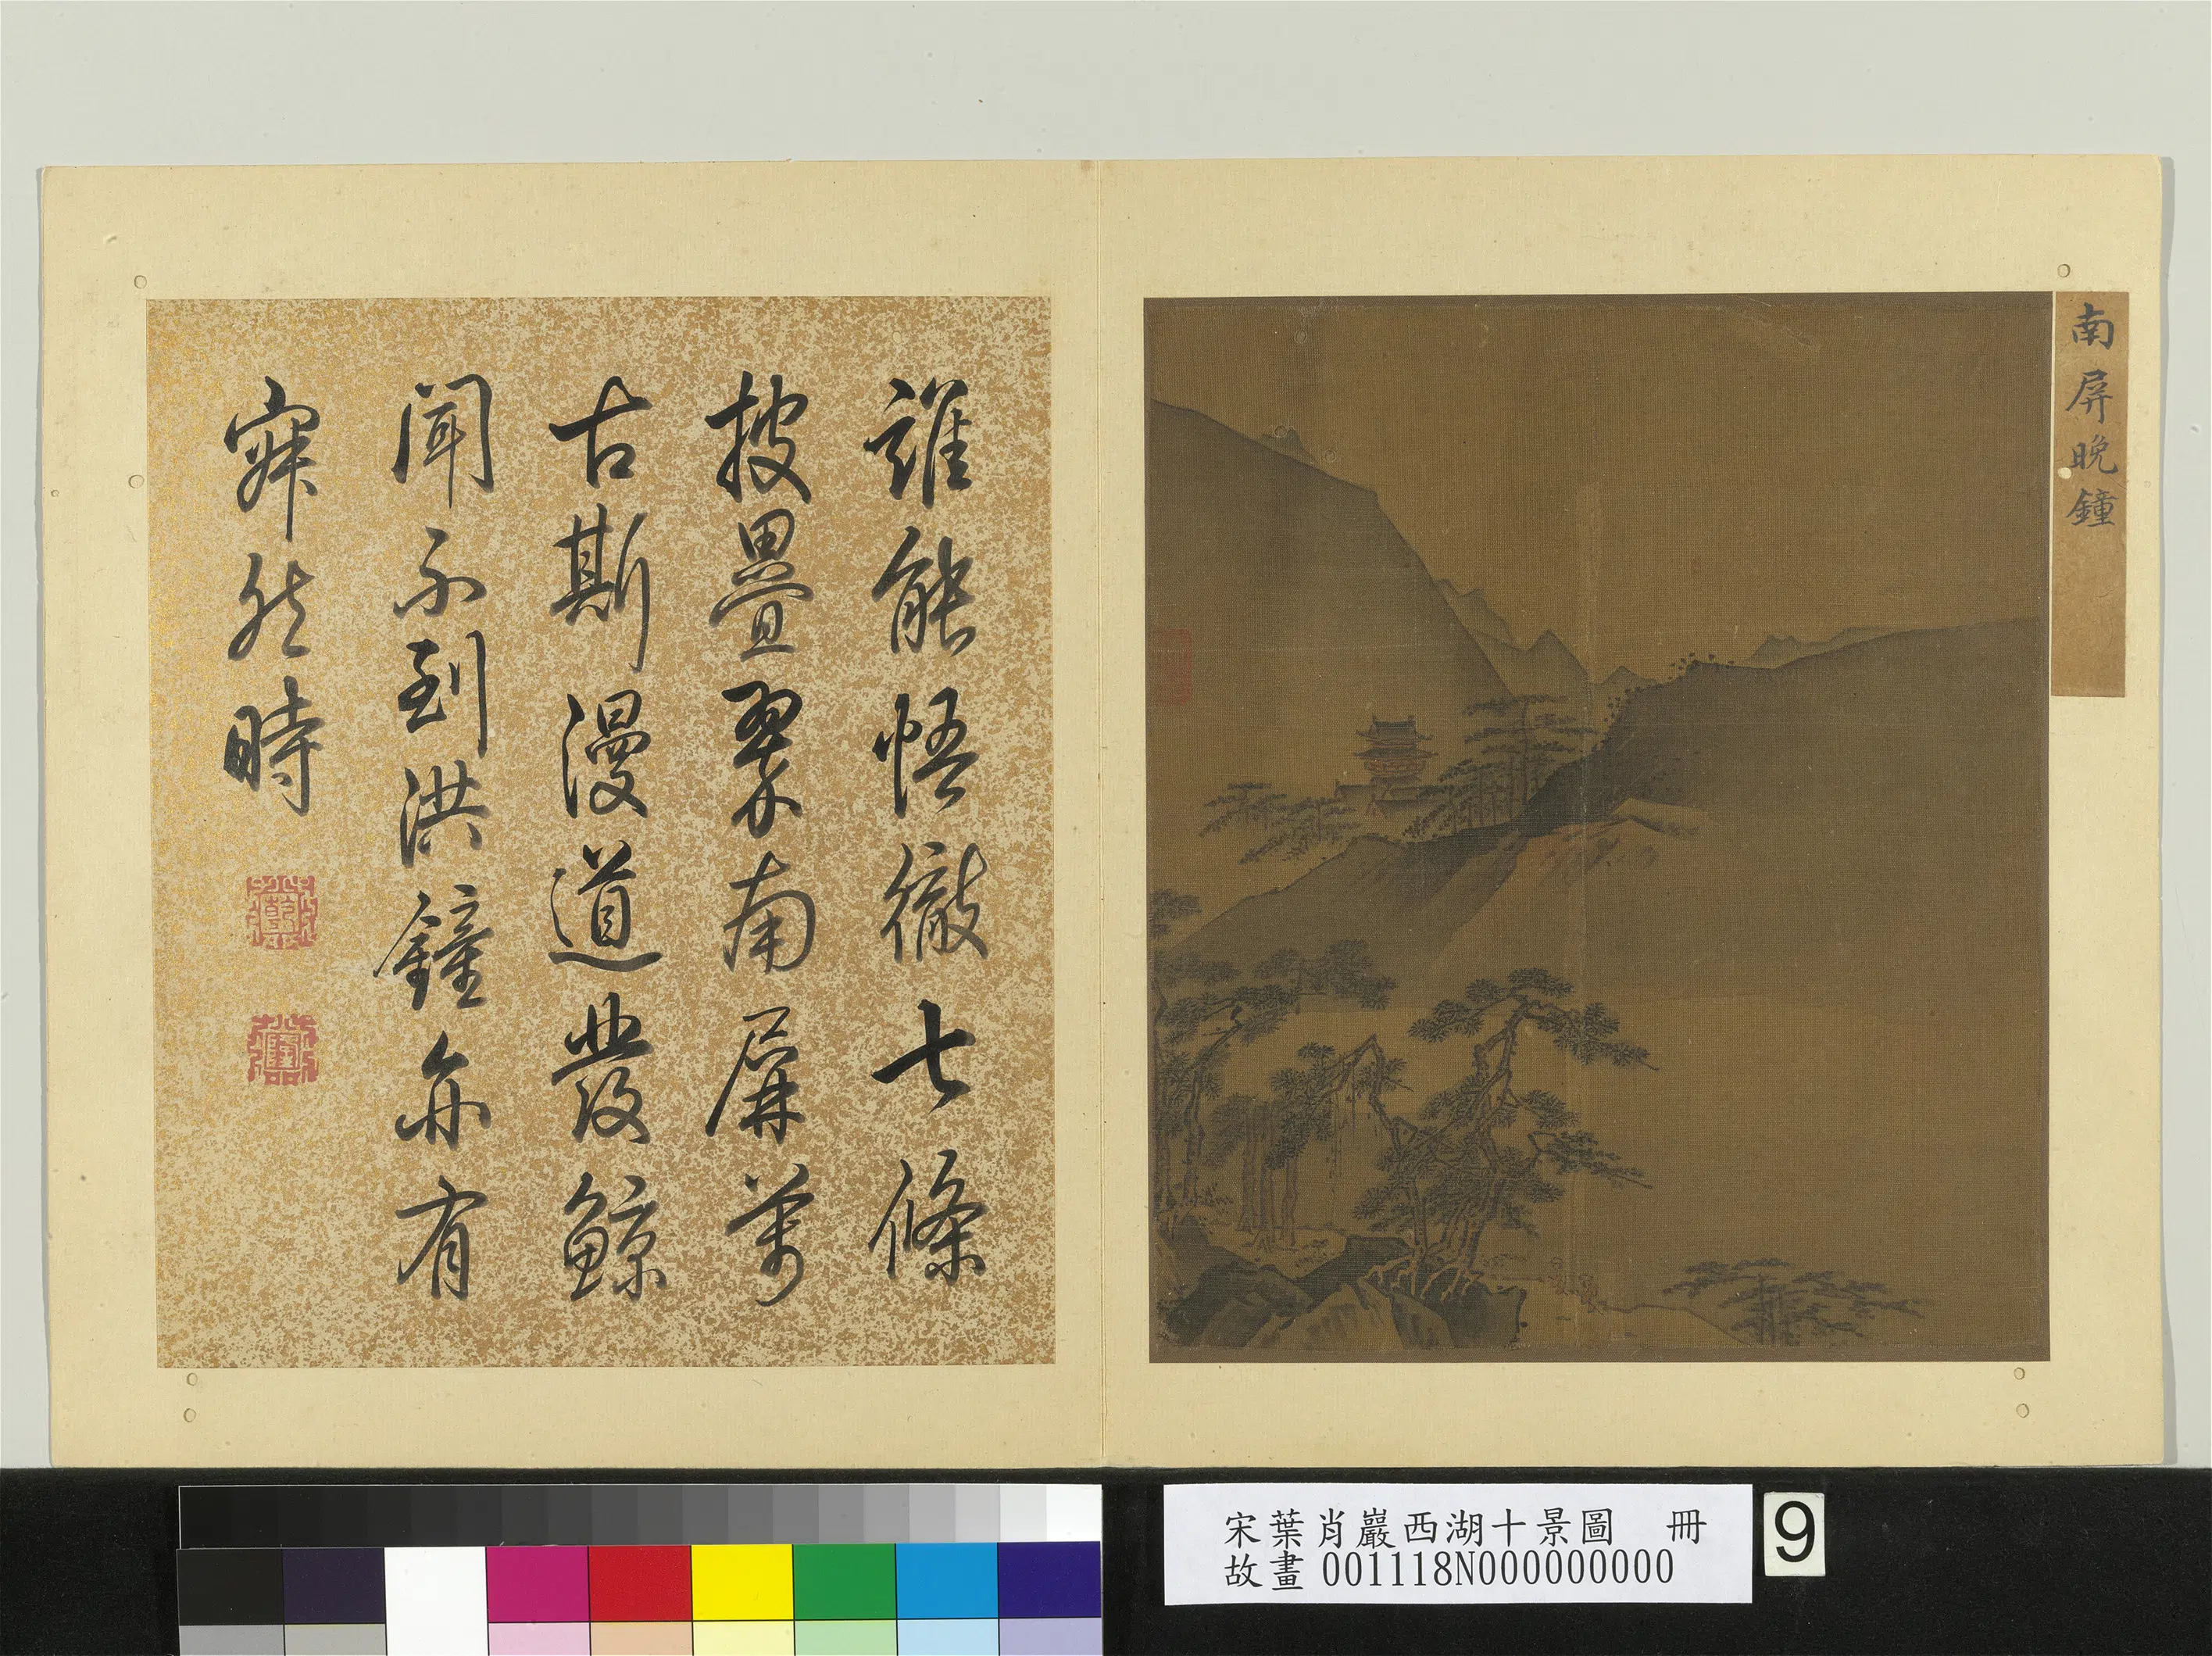 南屏晚鐘
誰能悟徹七條
披疊翠南屏萬
古斯漫道發鯨
聞不到洪鐘亦有
寂然時
宋葉肖巖西湖十景圖　冊
故畫 001118N000000000
9